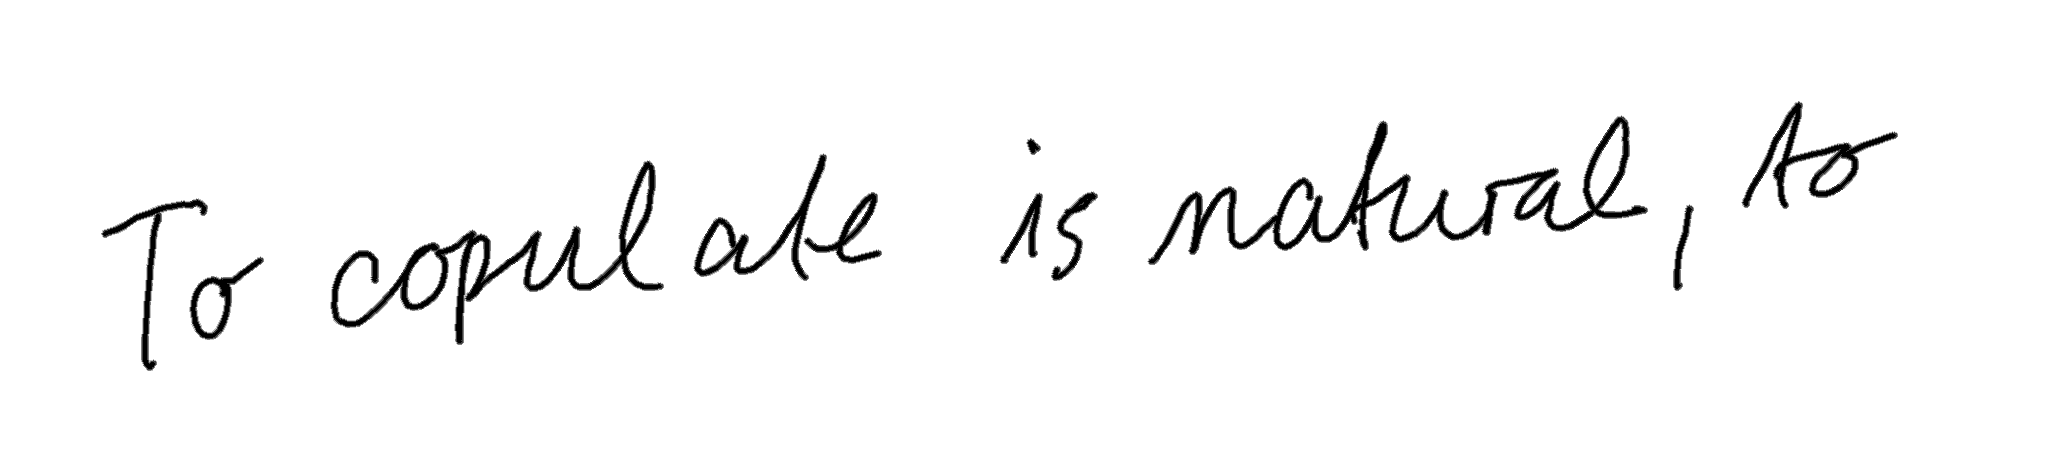 To copulate is natural, to